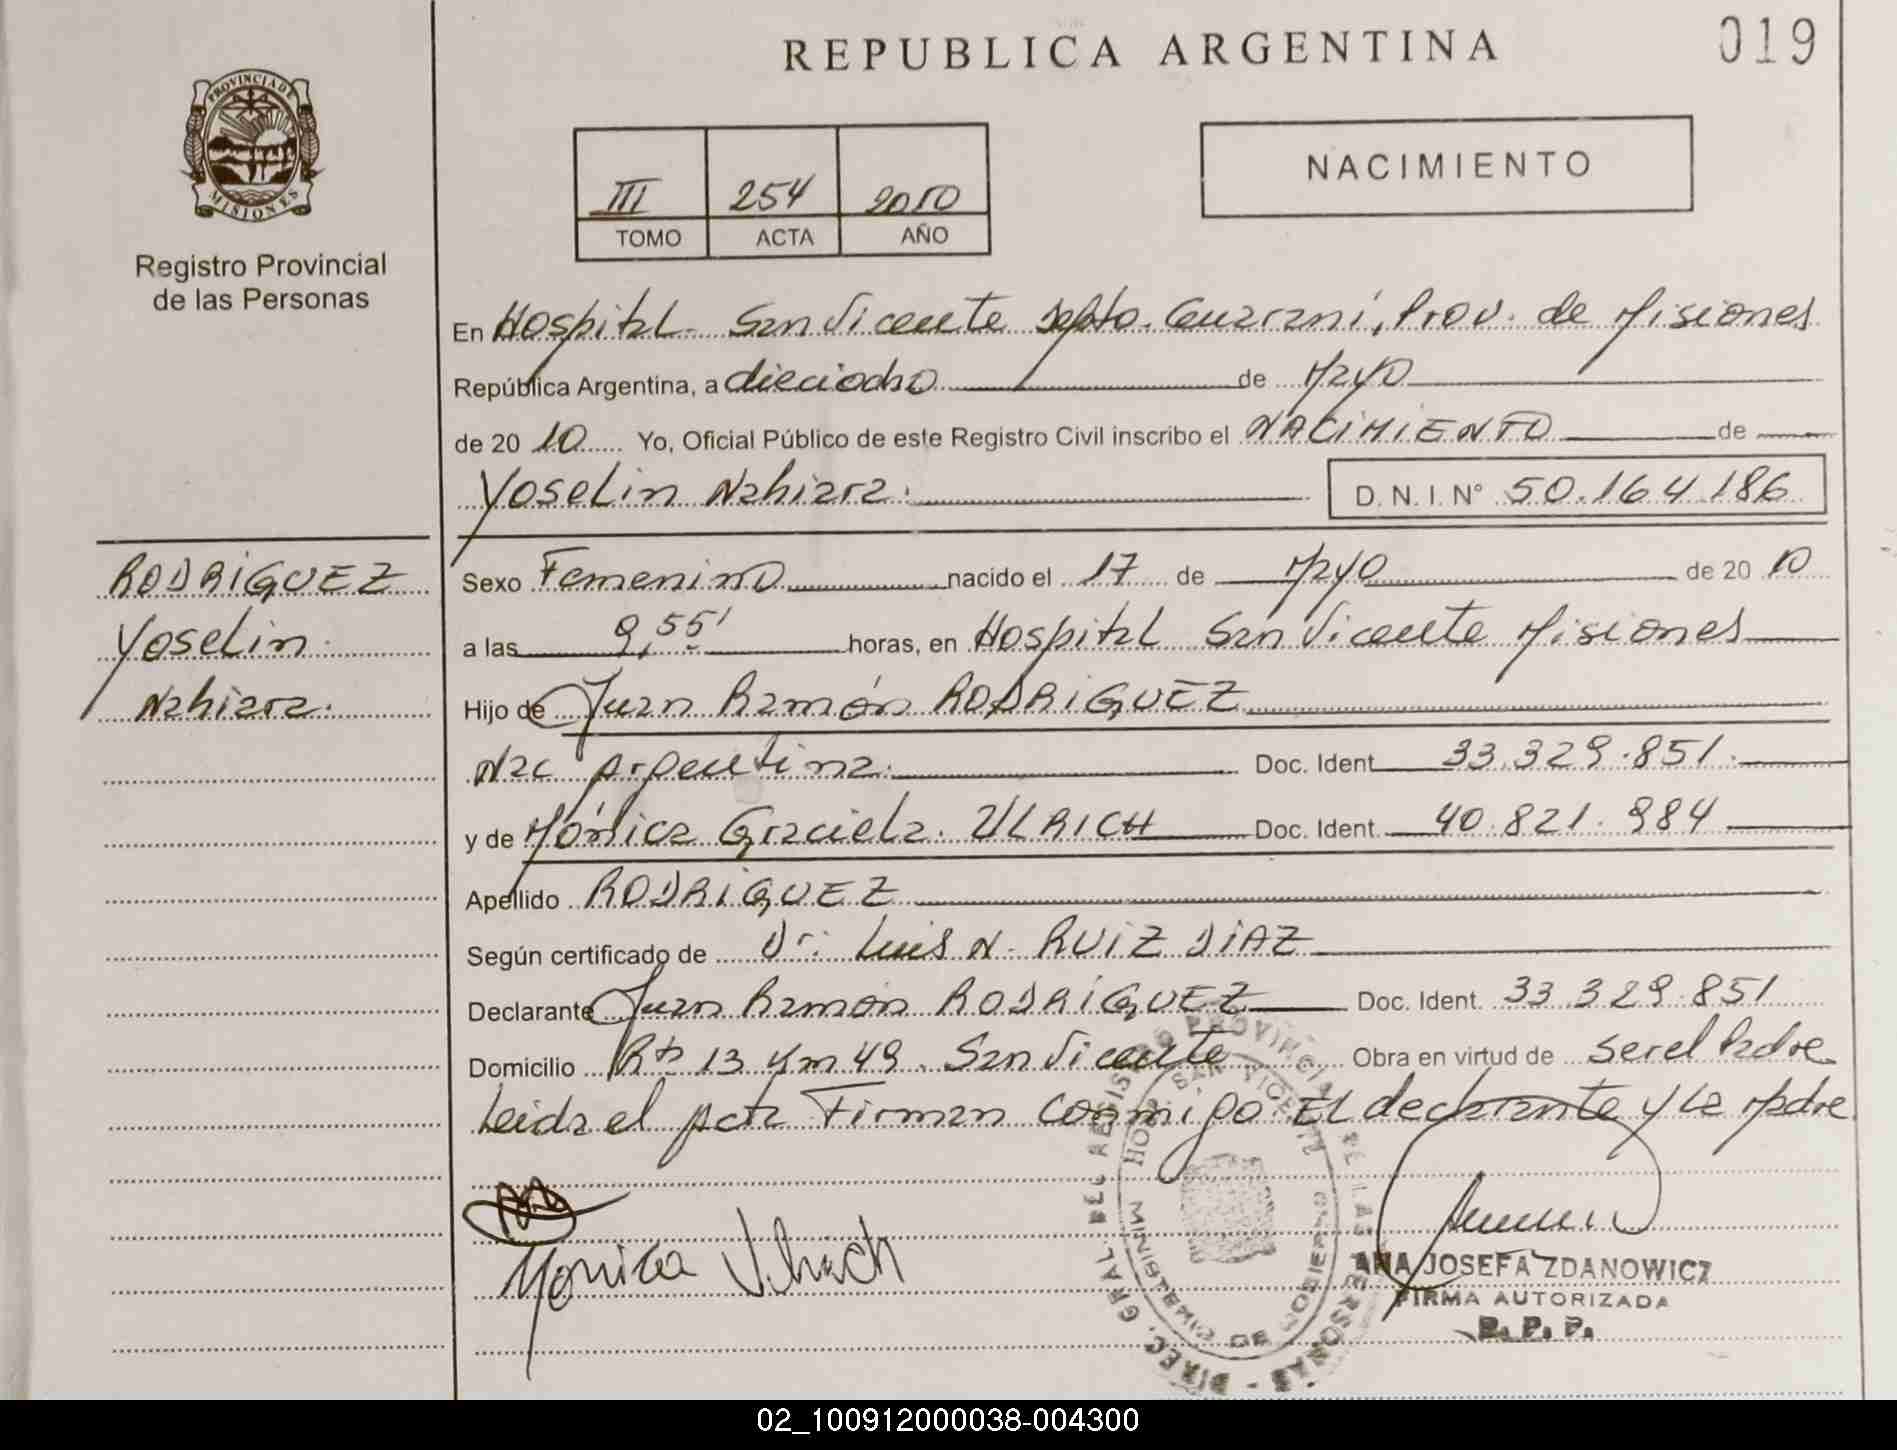 REPUBLICA ARGENTINA
019
PROVINCIA DE
MISIONES
Registro Provincial
de las Personas
III 254 2010
TOMO ACTA AÑO
NACIMIENTO
En Hospital San Vicente Dpto. Guaraní, Prov. de Misiones
República Argentina, a dieciocho de Mayo
de 20 10 Yo, Oficial Público de este Registro Civil inscribo el NACIMIENTO de
Yoselin Nahiara. D. N. I. N° 50.164.186
RODRIGUEZ
Yoselin
Nahiara.
Sexo Femenino nacido el 17 de Mayo de 20 10
a las 9,55' horas, en Hospital San Vicente Misiones
Hijo de Juan Ramón RODRIGUEZ
Nac Argentina. Doc. Ident 33.329.851.
y de Mónica Graciela. ULRICH Doc. Ident. 40.821.984
Apellido RODRIGUEZ
Según certificado de Dr. Luis N. RUIZ DIAZ
Declarante Juan Ramón RODRIGUEZ Doc. Ident. 33.329.851
Domicilio Rta 13 Km 49. San Vicente Obra en virtud de ser el Padre
Leida el Acta Firman Conmigo El declarante y la Madre
Monica Ulrich
ANA JOSEFA ZDANOWICZ
FIRMA AUTORIZADA
R. P. P.
DIREC. GRAL. DEL REGISTRO PROVINCIAL DE LAS PERSONAS
MINISTERIO DE GOBIERNO
02_100912000038-004300